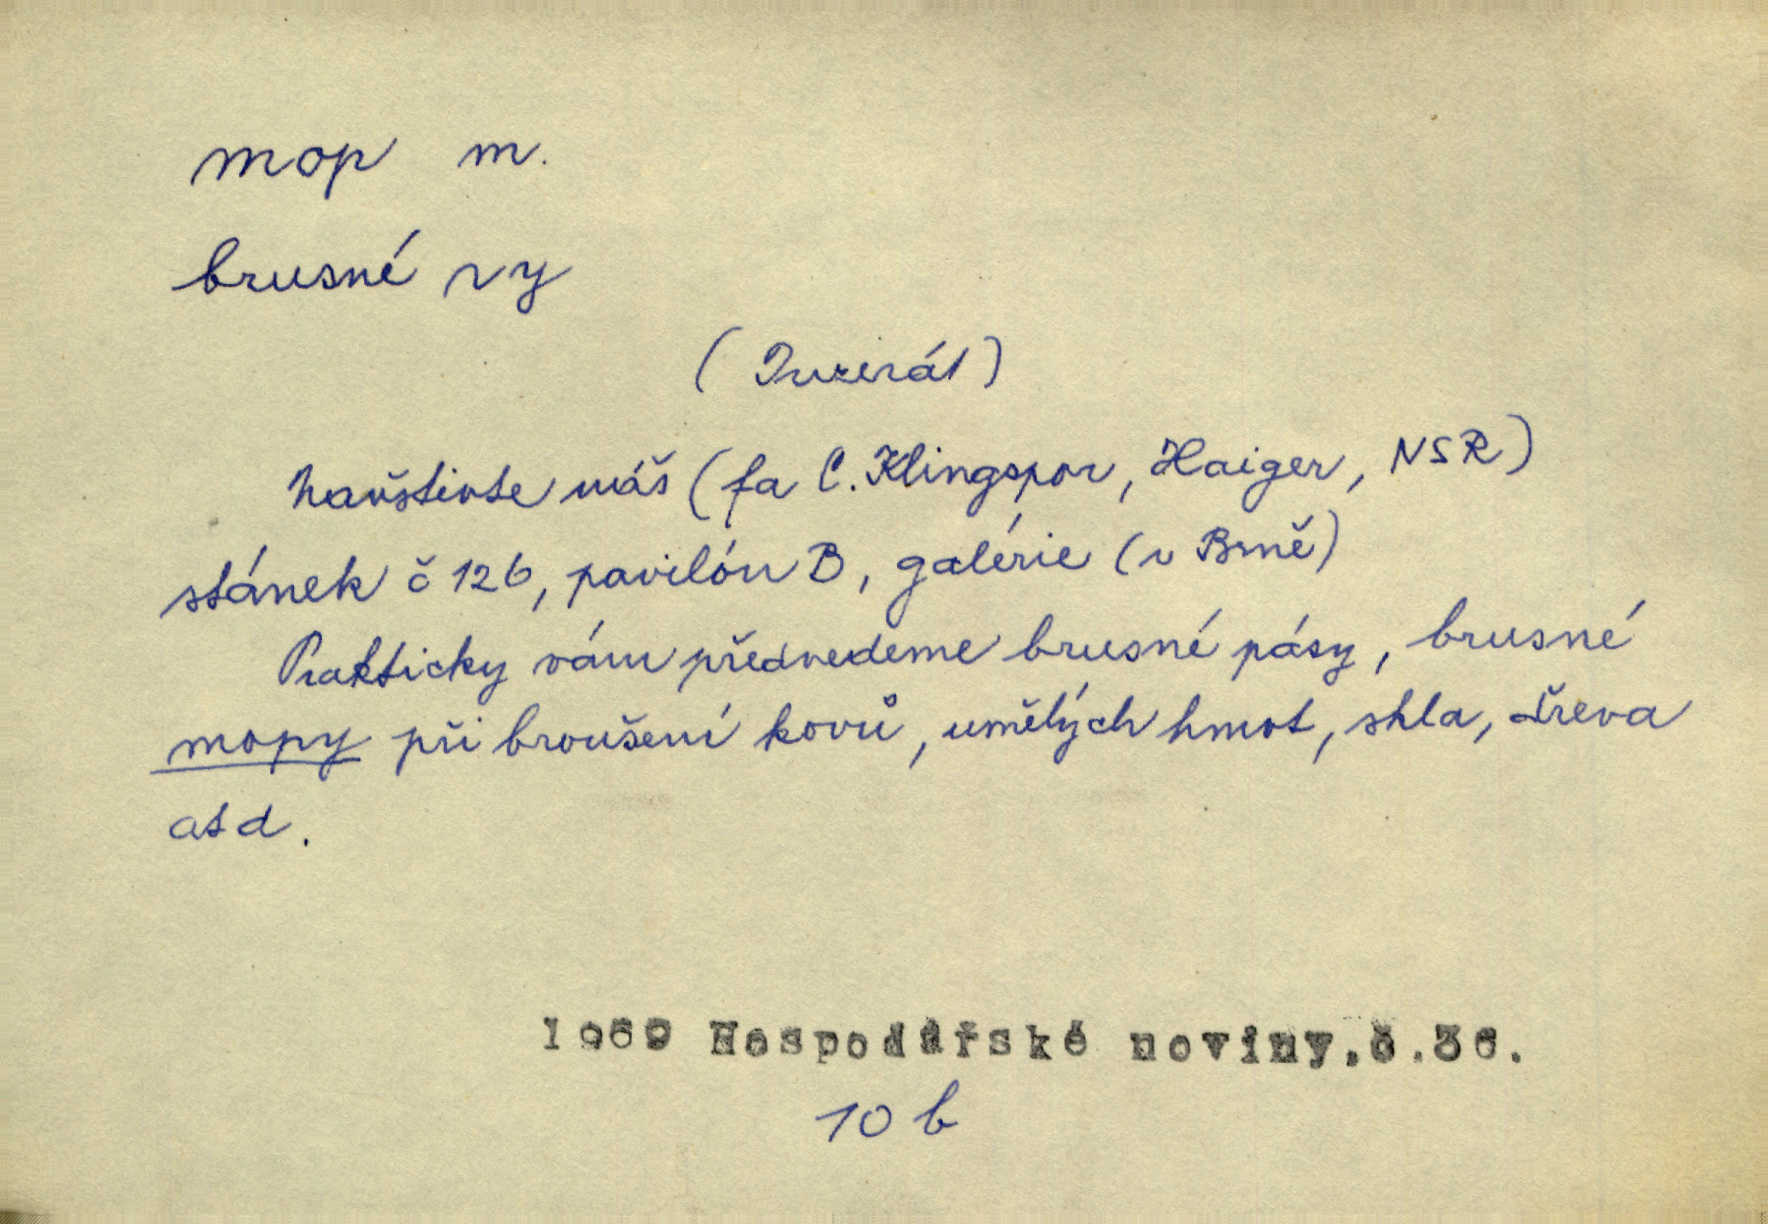 mop m.
brusné ~y
(Inzerát)
Navštivte náš (fa C. Klingspor, Haiger, NSR)
stánek č 126, pavilón B, galérie (v Brně)
Prakticky vám předvedeme brusné pásy, brusné
mopy při broušení kovů, umělých hmot, skla, dřeva
atd.
1969 Hospodářské noviny,č.36.
10 b